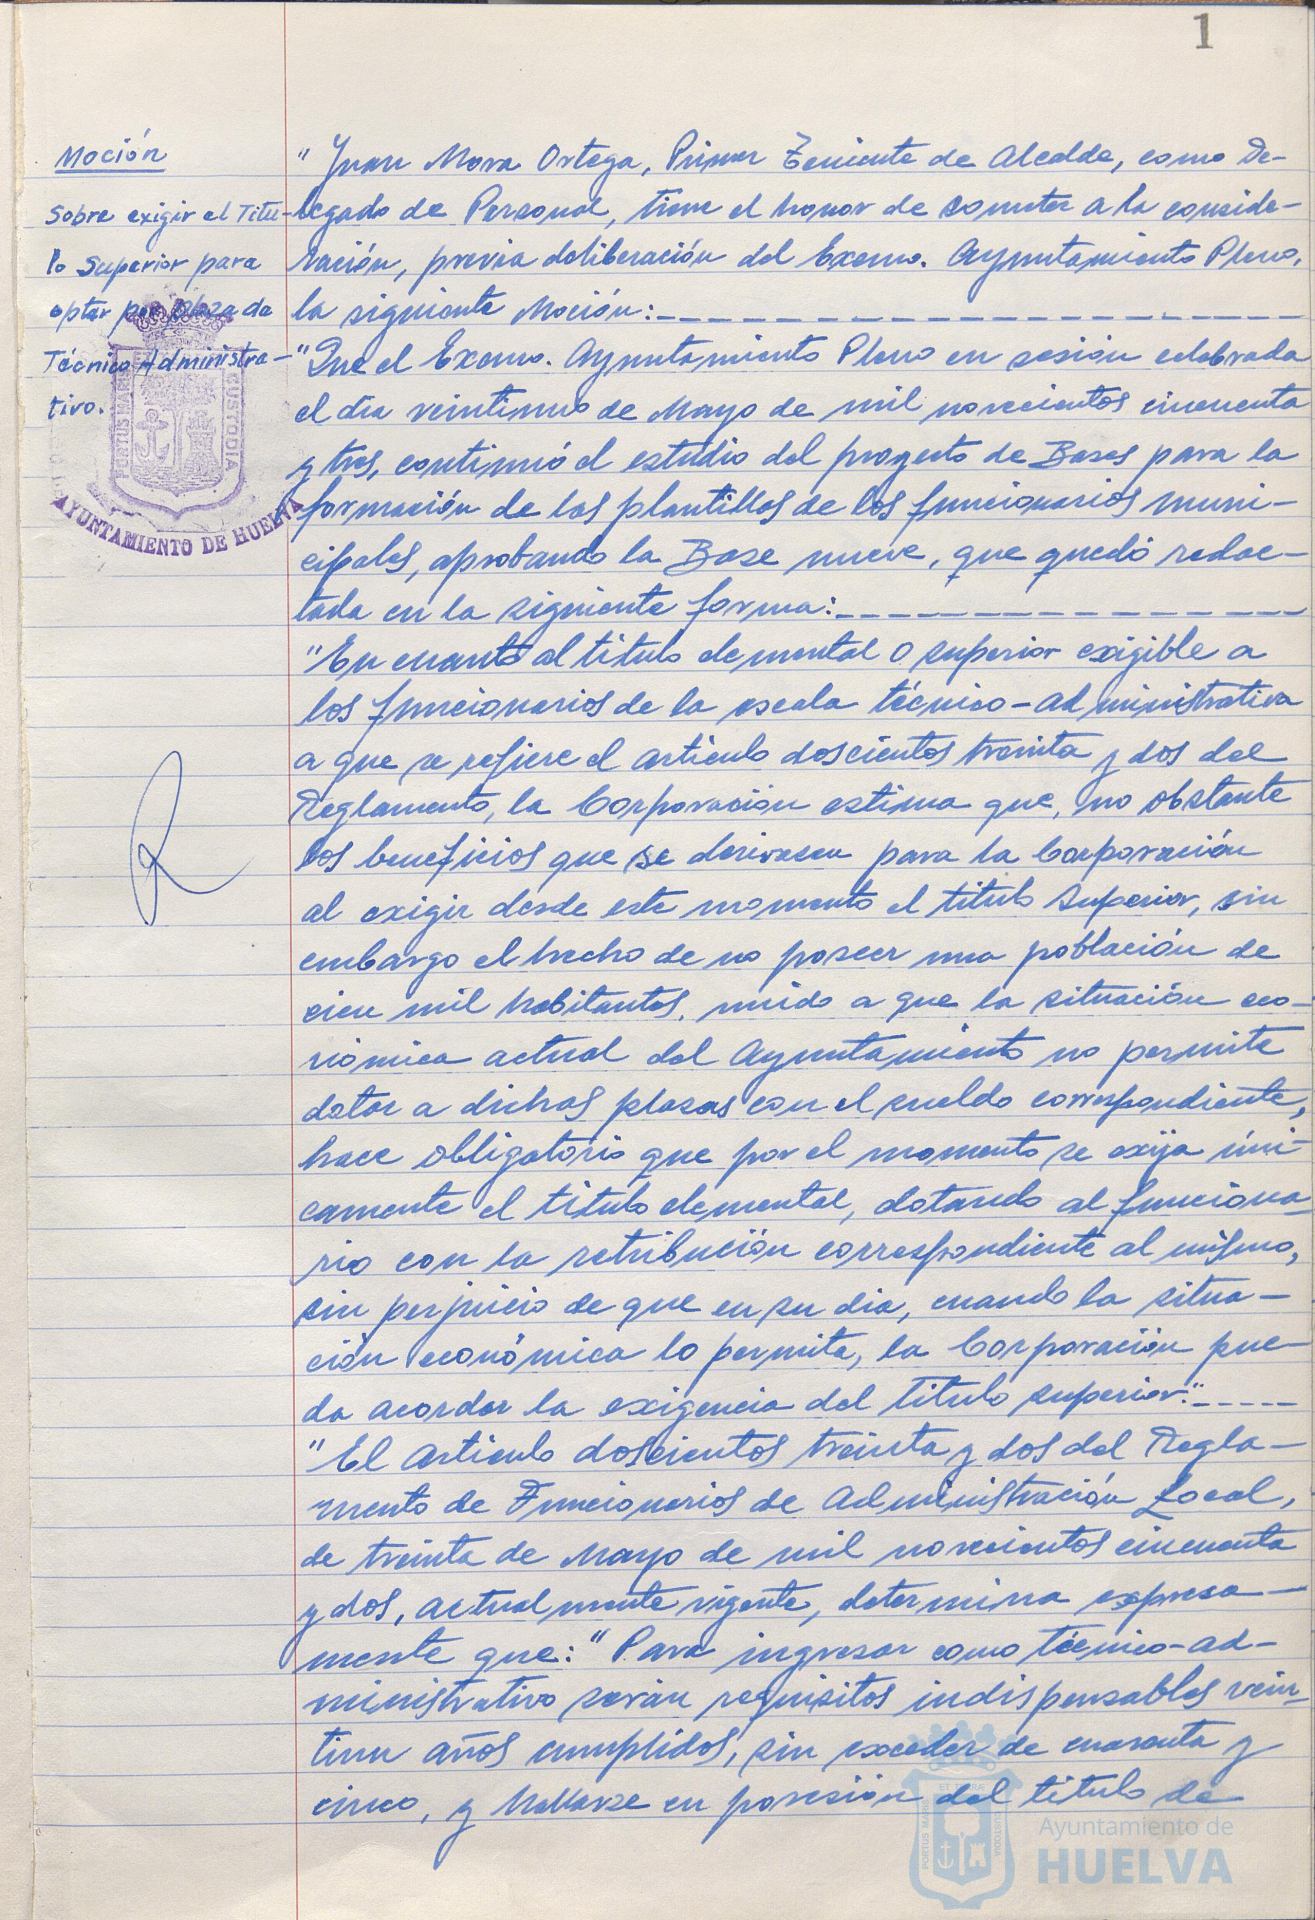 1
Moción
Sobre exigir el Titu-
lo Superior para
optar por plaza de
Técnico Administra-
tivo.
PORTUS MARIS
CUSTODIA
AYUNTAMIENTO DE HUELVA
"Juan Mora Ortega, Primer Teniente de Alcalde, como De-
legado de Personal, tiene el honor de someter a la conside-
ración, previa deliberación del Excmo. Ayuntamiento Pleno,
la siguiente Moción:
"Que el Excmo. Ayuntamiento Pleno en sesión celebrada
el día veintiuno de Mayo de mil novecientos cincuenta
y tres, continuó el estudio del proyecto de Bases para la
formación de las plantillas de los funcionarios muni-
cipales, aprobando la Base nueve, que quedó redac-
tada en la siguiente forma:
"En cuanto al titulo elemental o superior exigible a
los funcionarios de la escala técnico-administrativa
a que se refiere el artículo doscientos treinta y dos del
Reglamento, la Corporación estima que, no obstante
los beneficios que se derivasen para la Corporación
al exigir desde este momento el titulo Superior, sin
embargo el hecho de no poseer una población de
cien mil habitantes, unido a que la situación eco-
nómica actual del Ayuntamiento no permite
dotar a dichas plazas con el sueldo correspondiente,
hace obligatorio que por el momento se exija úni-
camente el titulo elemental, dotando al funciona-
rio con la retribución correspondiente al mismo,
sin perjuicio de que en su dia, cuando la situa-
ción económica lo permita, la Corporación pue-
da acordar la exigencia del titulo superior."
"El artículo doscientos treinta y dos del Regla-
mento de Funcionarios de Administración Local,
de treinta de Mayo de mil novecientos cincuenta
y dos, actualmente vigente, determina expresa-
mente que: "Para ingresar como técnico-ad-
ministrativo serán requisitos indispensables vein-
tiun años cumplidos, sin exceder de cuarenta y
cinco, y hallarse en posesión del titulo de
PORTUS MARIS
ET TERRAE
CUSTODIA
Ayuntamiento de
HUELVA